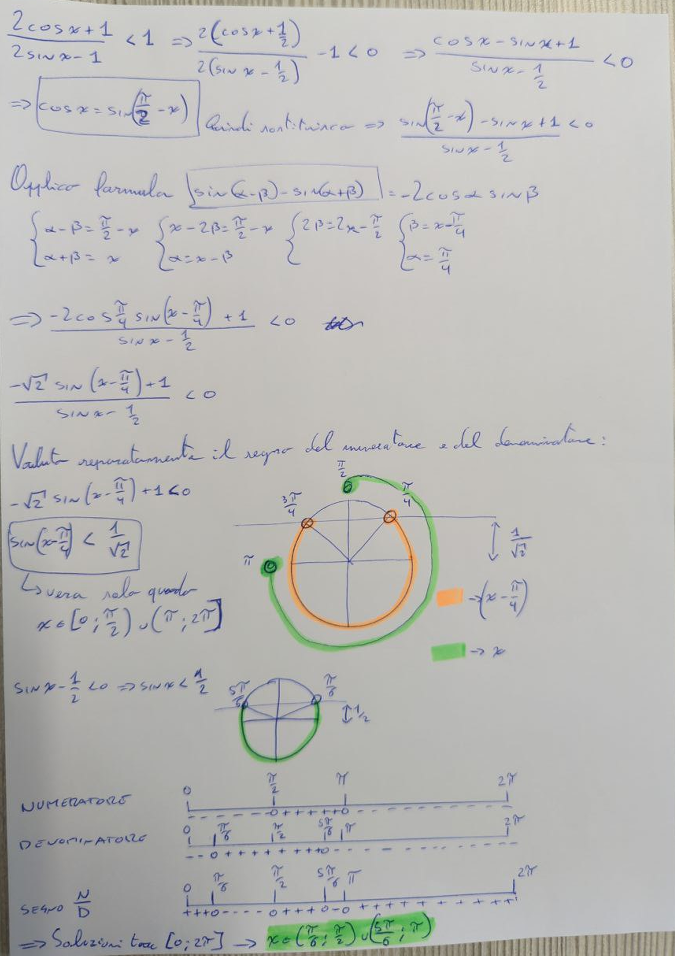 (2cosx+1)/(2sinx-1) < 1 ⇒ 2(cosx+1/2)/(2(sinx-1/2)) - 1 < 0 ⇒ (cosx-sinx+1)/(sinx-1/2) < 0
⇒ cosx = sin(π/2 - x) Quindi sostituisco ⇒ (sin(π/2-x) - sinx + 1)/(sinx-1/2) < 0
Applico formula sin(α-β) - sin(α+β) = -2cosα sinβ
{α-β = π/2 - x {x-2β = π/2 - x {2β = 2x - π/2 {β = x - π/4
{α+β = x {α = x-β { {α = π/4
⇒ (-2cos π/4 sin(x-π/4) + 1)/(sinx-1/2) < 0
(-√2 sin(x-π/4) + 1)/(sinx-1/2) < 0
Valuto separatamente il segno del numeratore e del denominatore:
-√2 sin(x-π/4) + 1 < 0
sin(x-π/4) < 1/√2
↳ vera solo quando
x∈[0; π/2) ∪ (π; 2π]
π/2
3π/4 π/4
π
1/√2
→ (x-π/4)
→ x
sinx - 1/2 < 0 ⇒ sinx < 1/2
5π/6 π/6
1/2
0 π/2 π 2π
NUMERATORE
0 π/6 π/2 5π/6 π 2π
DENOMINATORE
0 π/6 π/2 5π/6 π 2π
SEGNO N/D
+++0----0+++0--0++++++++++
⇒ Soluzioni tra [0; 2π] → x∈(π/6; π/2) ∪ (5π/6; π)